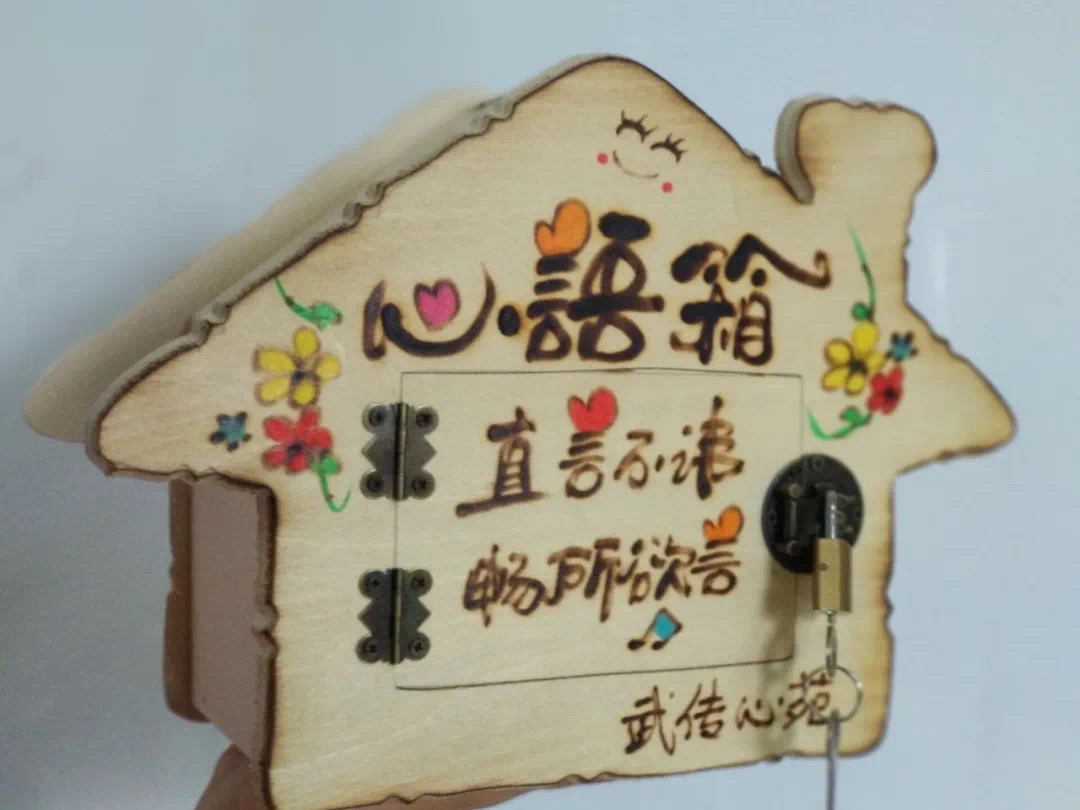 心語箱
直言不讳
畅所欲言
武传心苑